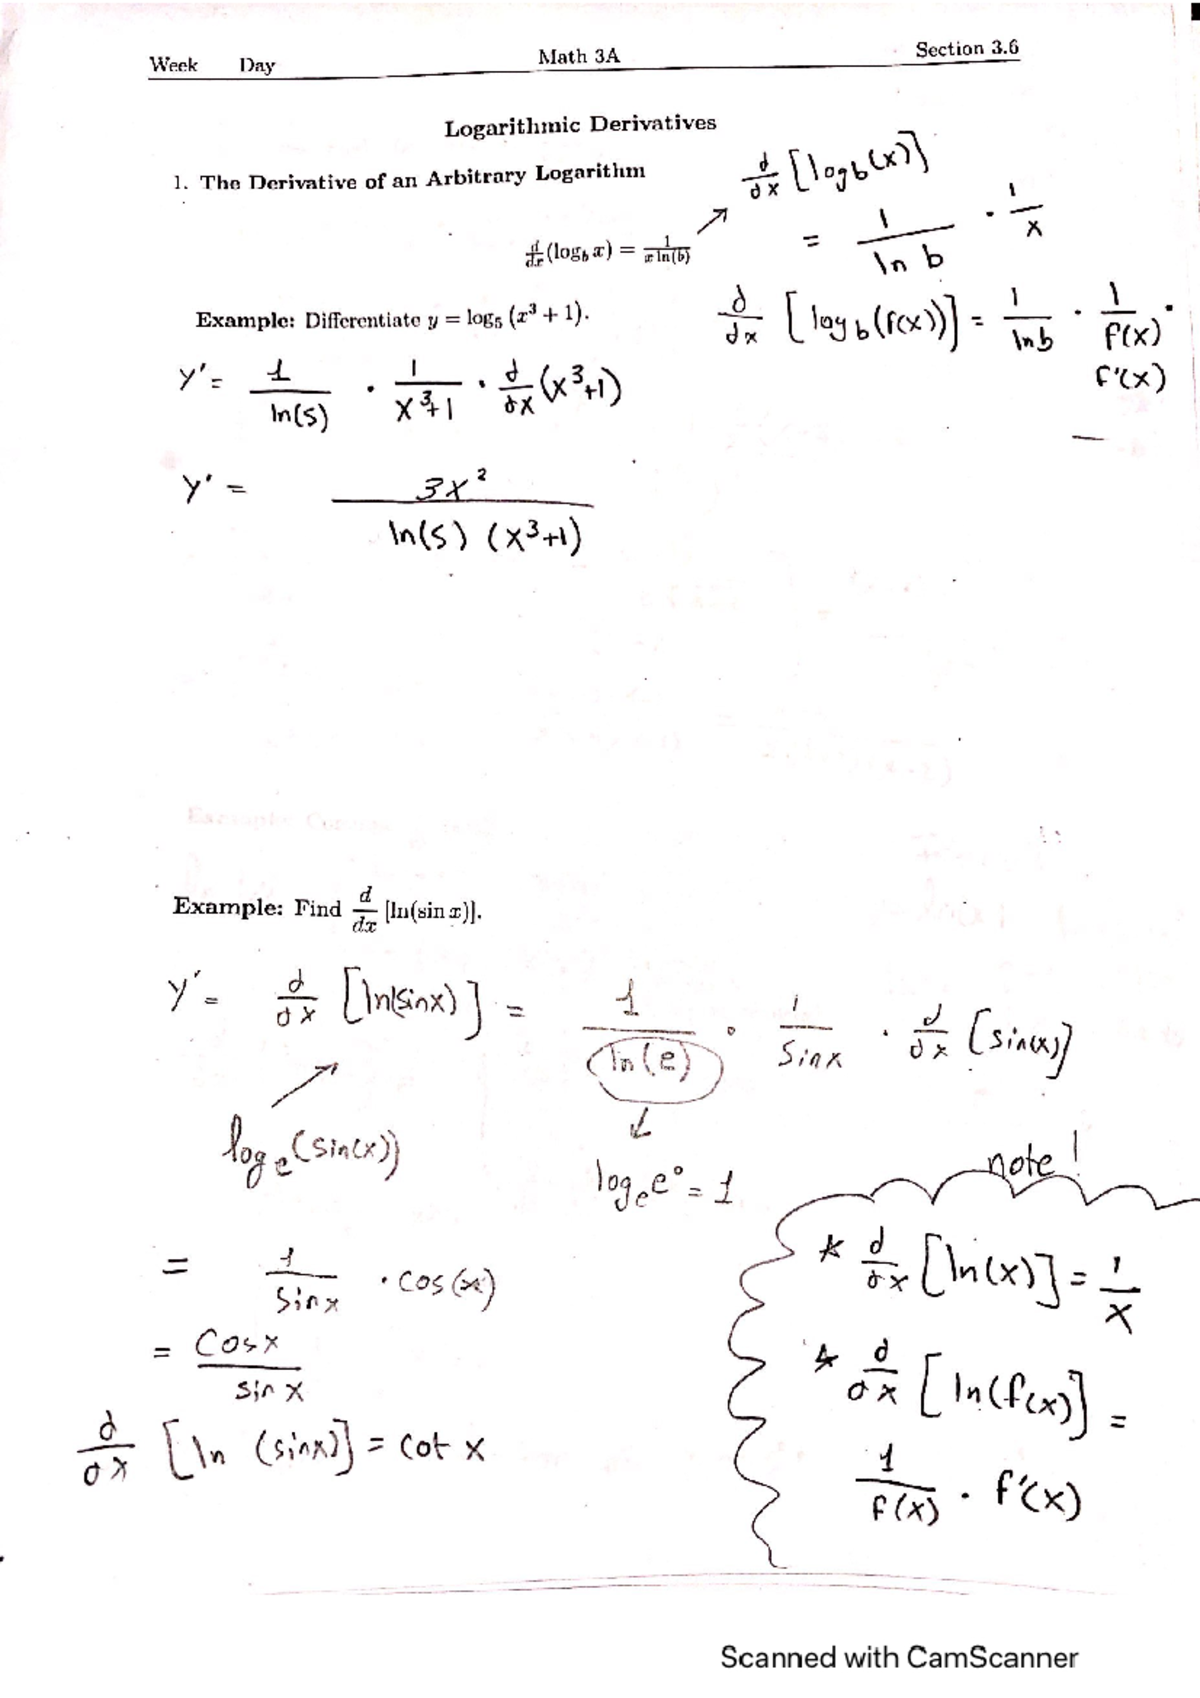 Week Day Math 3A Section 3.6
Logarithmic Derivatives
1. The Derivative of an Arbitrary Logarithm
d/dx (log_b x) = 1/(x ln(b))
d/dx [log_b(x)]
= 1/(ln b) · 1/x
d/dx [log_b(f(x))] = 1/(ln b) · 1/f(x) ·
f'(x)
Example: Differentiate y = log₅ (x³ + 1).
y' = 1/ln(5) · 1/(x³+1) · d/dx (x³+1)
y' = 3x²/(ln(5) (x³+1))
Example: Find d/dx [ln(sin x)].
y' = d/dx [ln(sinx)] = 1/ln(e) · 1/sinx · d/dx [sin(x)]
log_e(sin(x))
log_e e° = 1
= 1/sinx · cos(x)
= cosx/sinx
d/dx [ln (sinx)] = cot x
note!
* d/dx [ln(x)] = 1/x
* d/dx [ln(f(x)] =
1/f(x) · f'(x)
Scanned with CamScanner